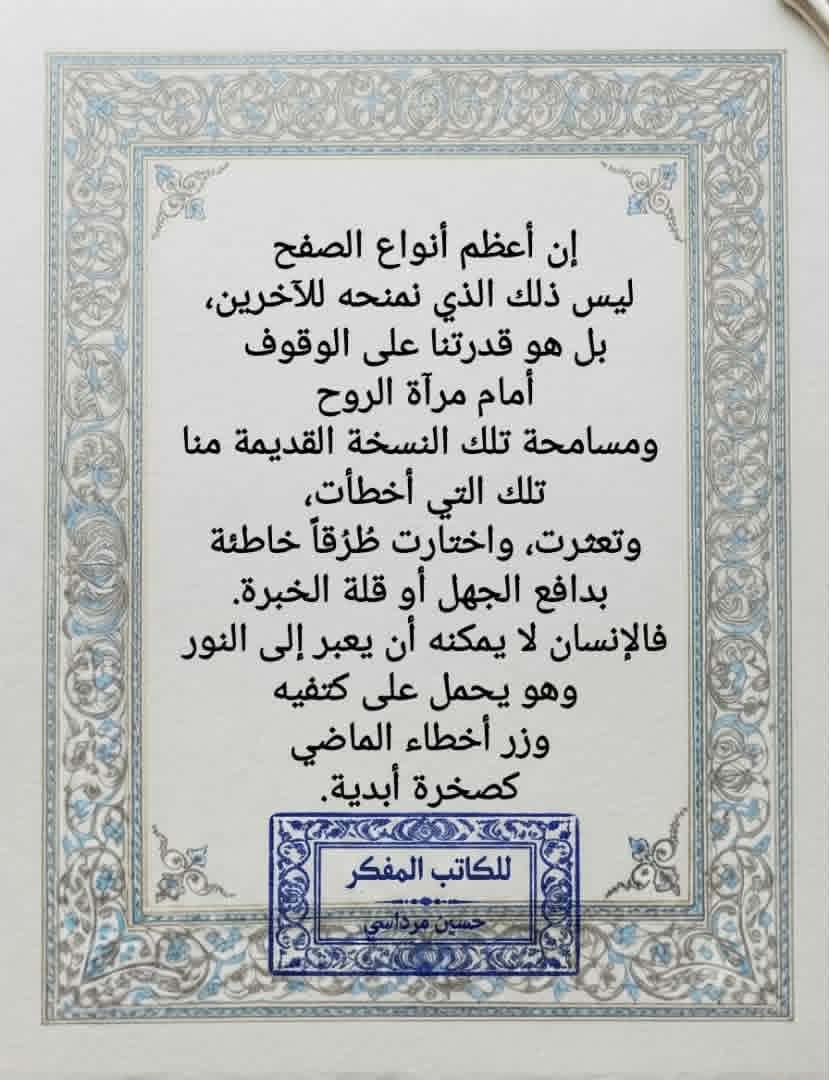 إن أعظم أنواع الصفح
ليس ذلك الذي نمنحه للآخرين،
بل هو قدرتنا على الوقوف
أمام مرآة الروح
ومسامحة تلك النسخة القديمة منا
تلك التي أخطأت،
وتعثرت، واختارت طُرُقاً خاطئة
بدافع الجهل أو قلة الخبرة.
فالإنسان لا يمكنه أن يعبر إلى النور
وهو يحمل على كتفيه
وزر أخطاء الماضي
كصخرة أبدية.
للكاتب المفكر
حسين مرداسي